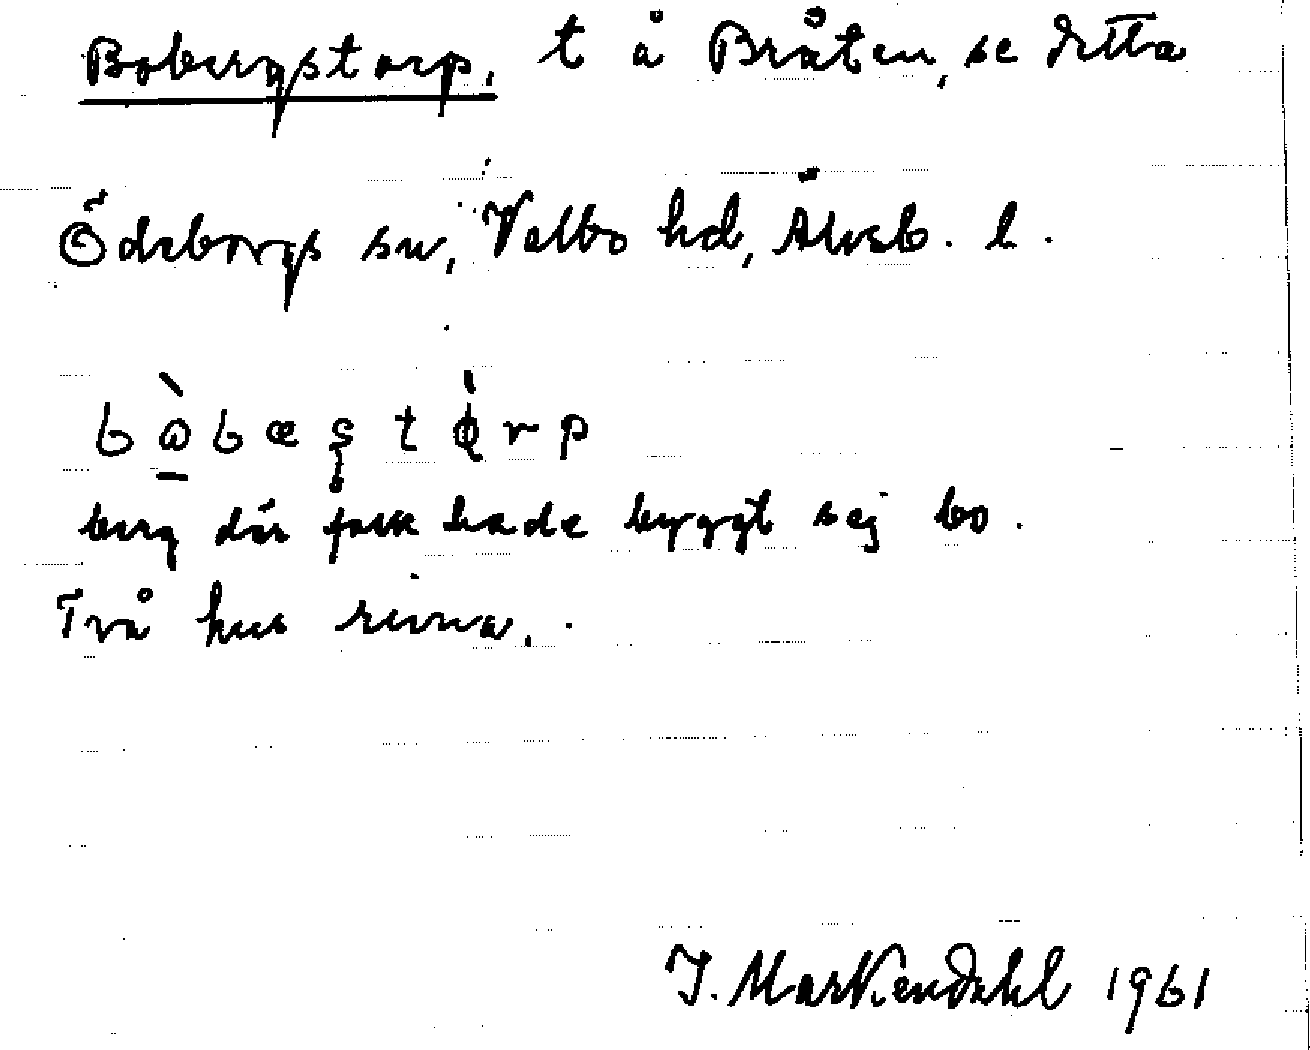 Bobergstorp, t å Bråten, se detta
Ödeborgs sn, Valbo hd, Älvsb. l.
berg där folk hade byggt sej bo.
Två hus rivna.
J. Markendahl 1961